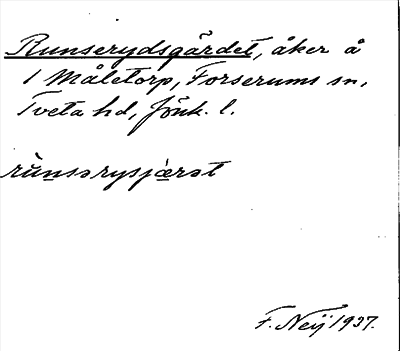 Runserydsgärdet, åker å
1 Måletorp, Forserums sn,
Tveta hd, Jönk. l.
rùnsərysjæ̀rət
F. Neij 1937.